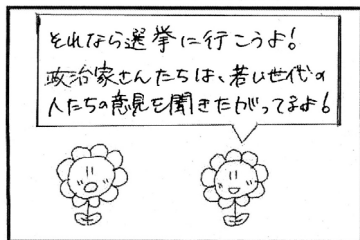 それなら選挙に行こうよ!
政治家さんたちは、若い世代の
人たちの意見を聞きたがってるよ!